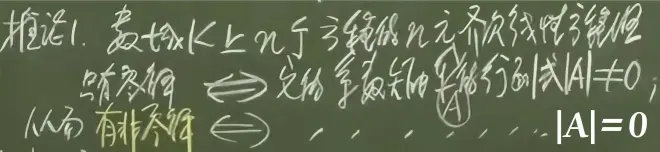 推论1. 数域K上n个方程的n元齐次线性方程组
只有零解 ⟺ 它的系数矩阵A的行列式|A|≠0;
从而 有非零解 ⟺ , , , , . . . . . |A|=0